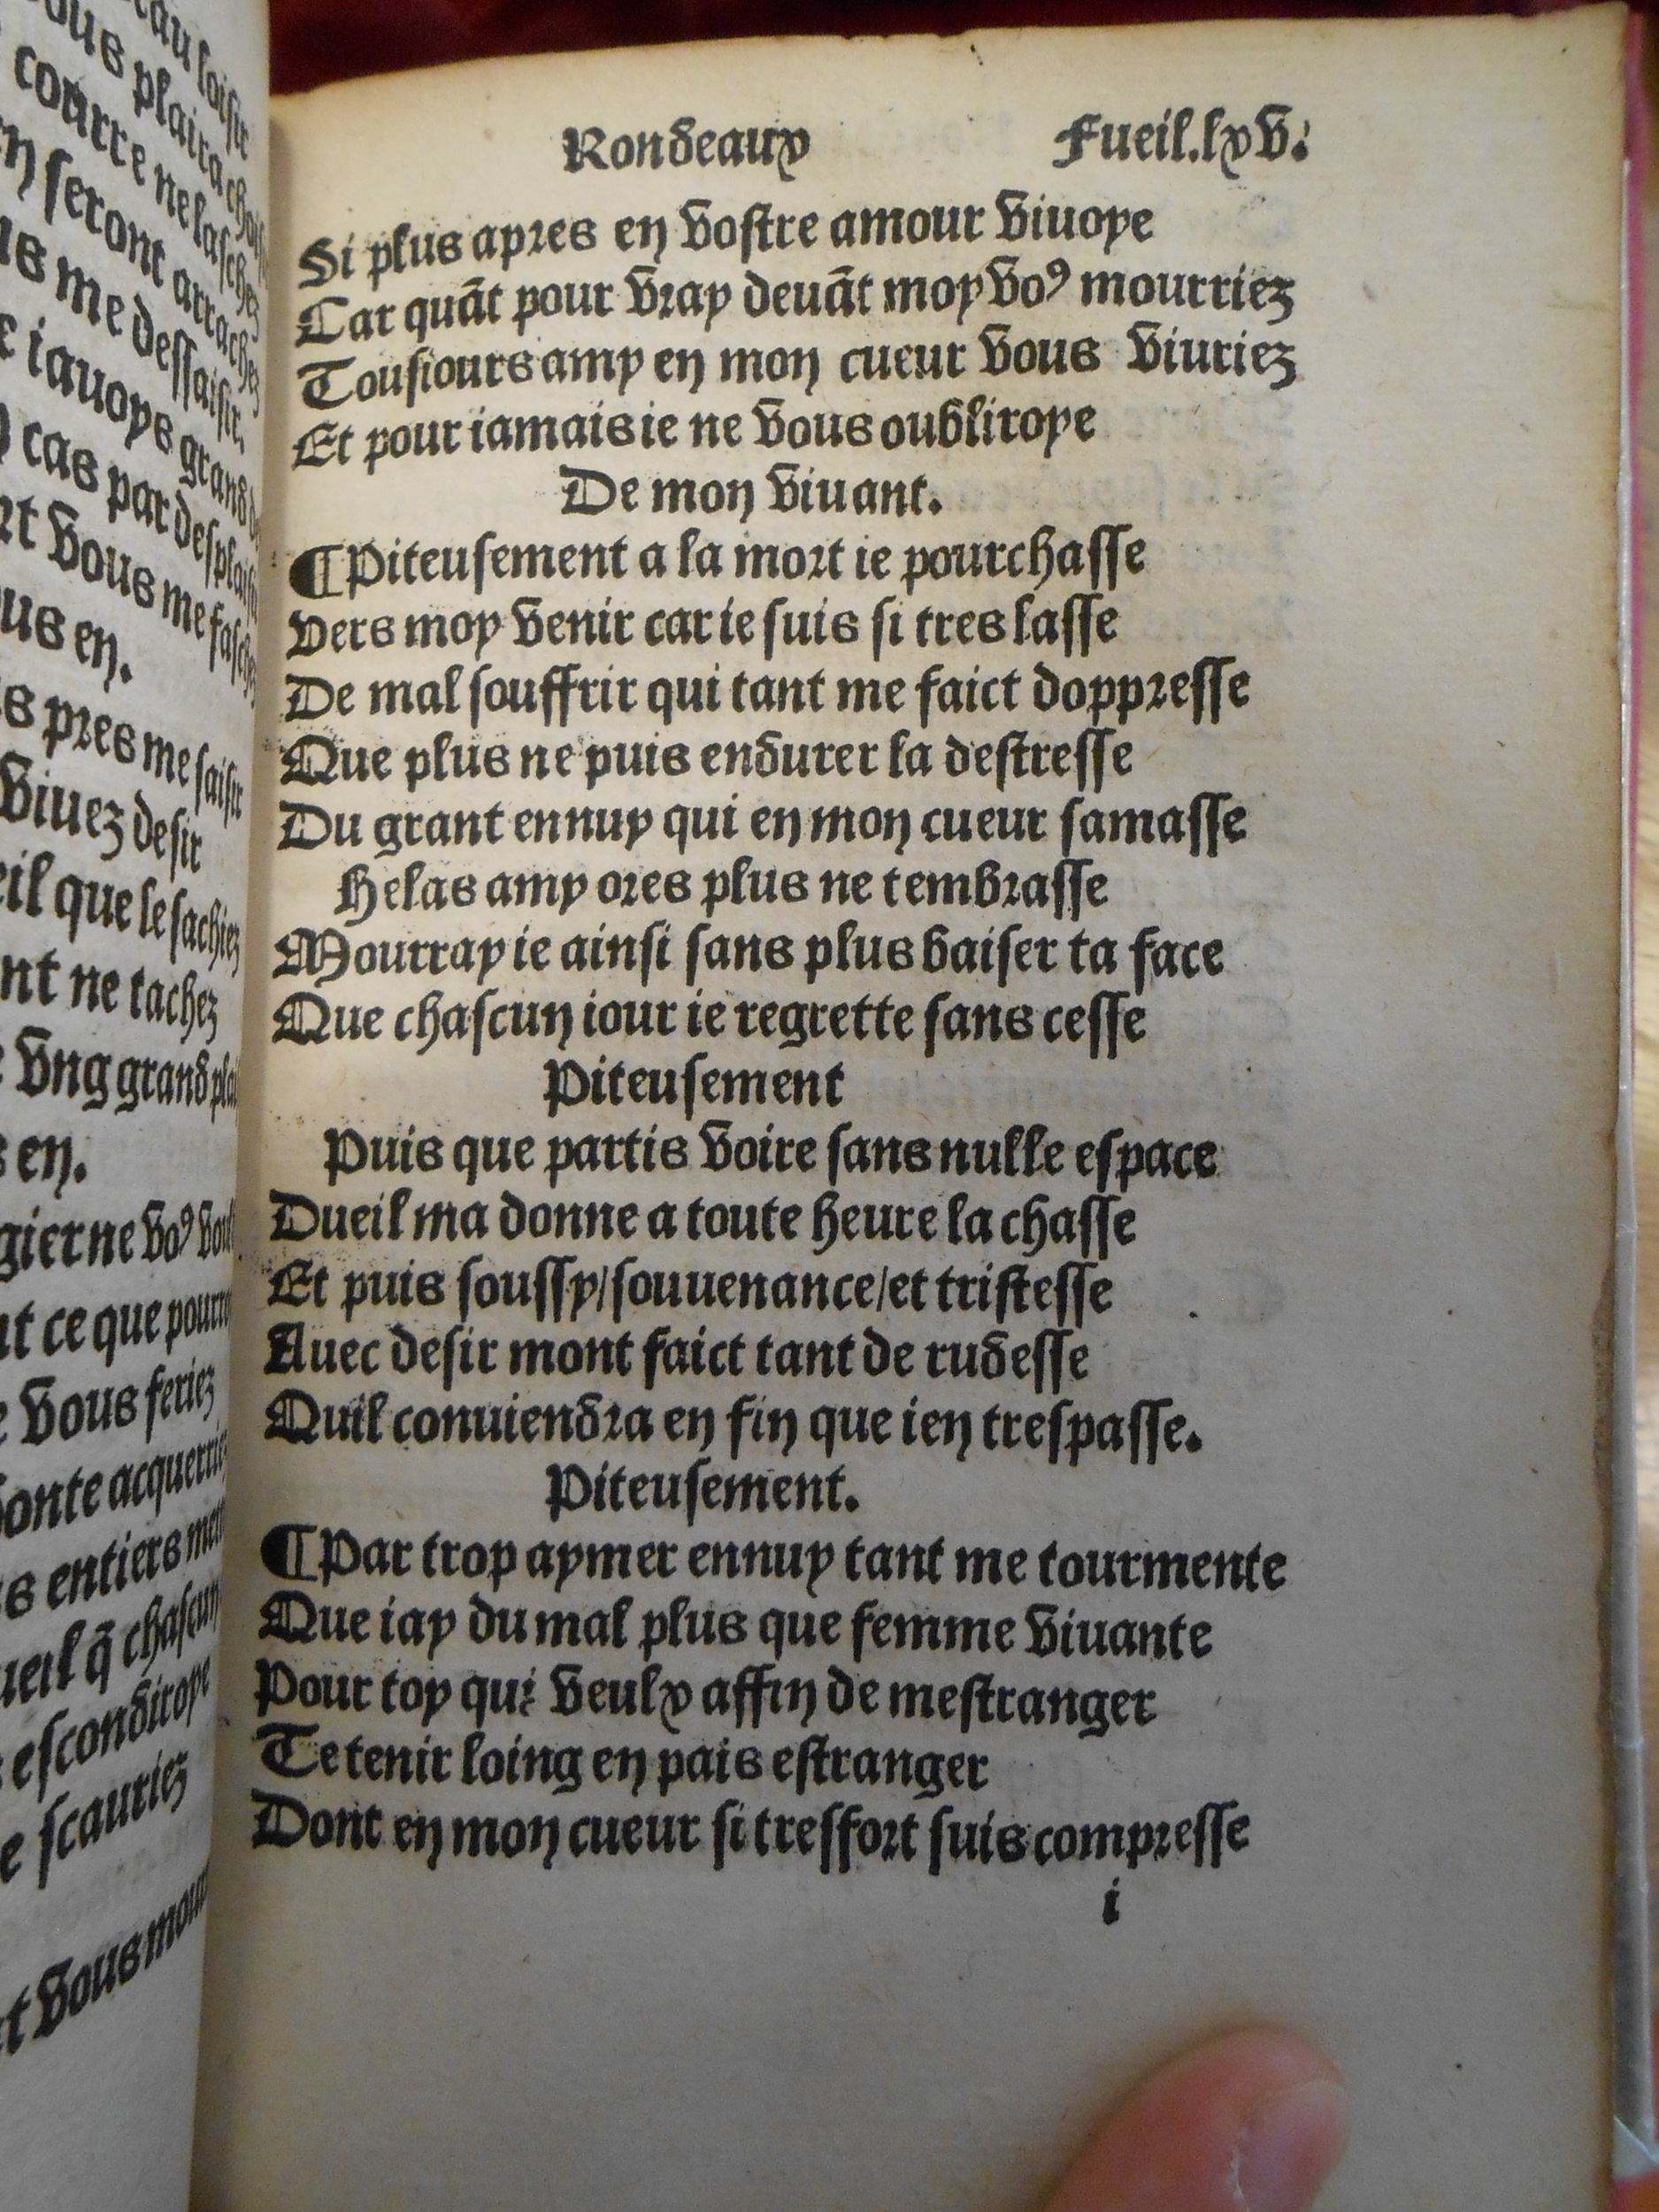 au loisir
ous plaira chois
courre ne laschez
n seront arrachez
us me dessaisir.
e iauoys grand
cas par desplais
rt vous me fasch
us en.
s pres me saisir
viuez desir
eil que le sachiez
nt ne tachez
vng grand plai
s en.
gier ne voꝰ
nt ce que pourr
e vous feriez
onte acquerriez
s entiers
ueil q̃ chascun
escondiroye
e scauriez
t vous mour
Rondeaux Fueil.lxv.
Si plus apres en vostre amour viuoye
Car quãt pour vray deuãt moy voꝰ mourriez
Tousiours amy en mon cueur vous viuriez
Et pour iamais ie ne vous oubliroye
De mon viuant.
¶Piteusement a la mort ie pourchasse
Vers moy venir car ie suis si tres lasse
De mal souffrir qui tant me faict doppresse
Que plus ne puis endurer la destresse
Du grant ennuy qui en mon cueur samasse
Helas amy ores plus ne tembrasse
Mourray ie ainsi sans plus baiser ta face
Que chascun iour ie regrette sans cesse
Piteusement
Puis que partis voire sans nulle espace
Dueil ma donne a toute heure la chasse
Et puis soussy/souuenance/et tristesse
Auec desir mont faict tant de rudesse
Quil conuiendra en fin que ien trespasse.
Piteusement.
¶Par trop aymer ennuy tant me tourmente
Que iay du mal plus que femme viuante
Pour toy qui veulx affin de mestranger
Te tenir loing en pais estranger
Dont en mon cueur si tresfort suis compresse
i